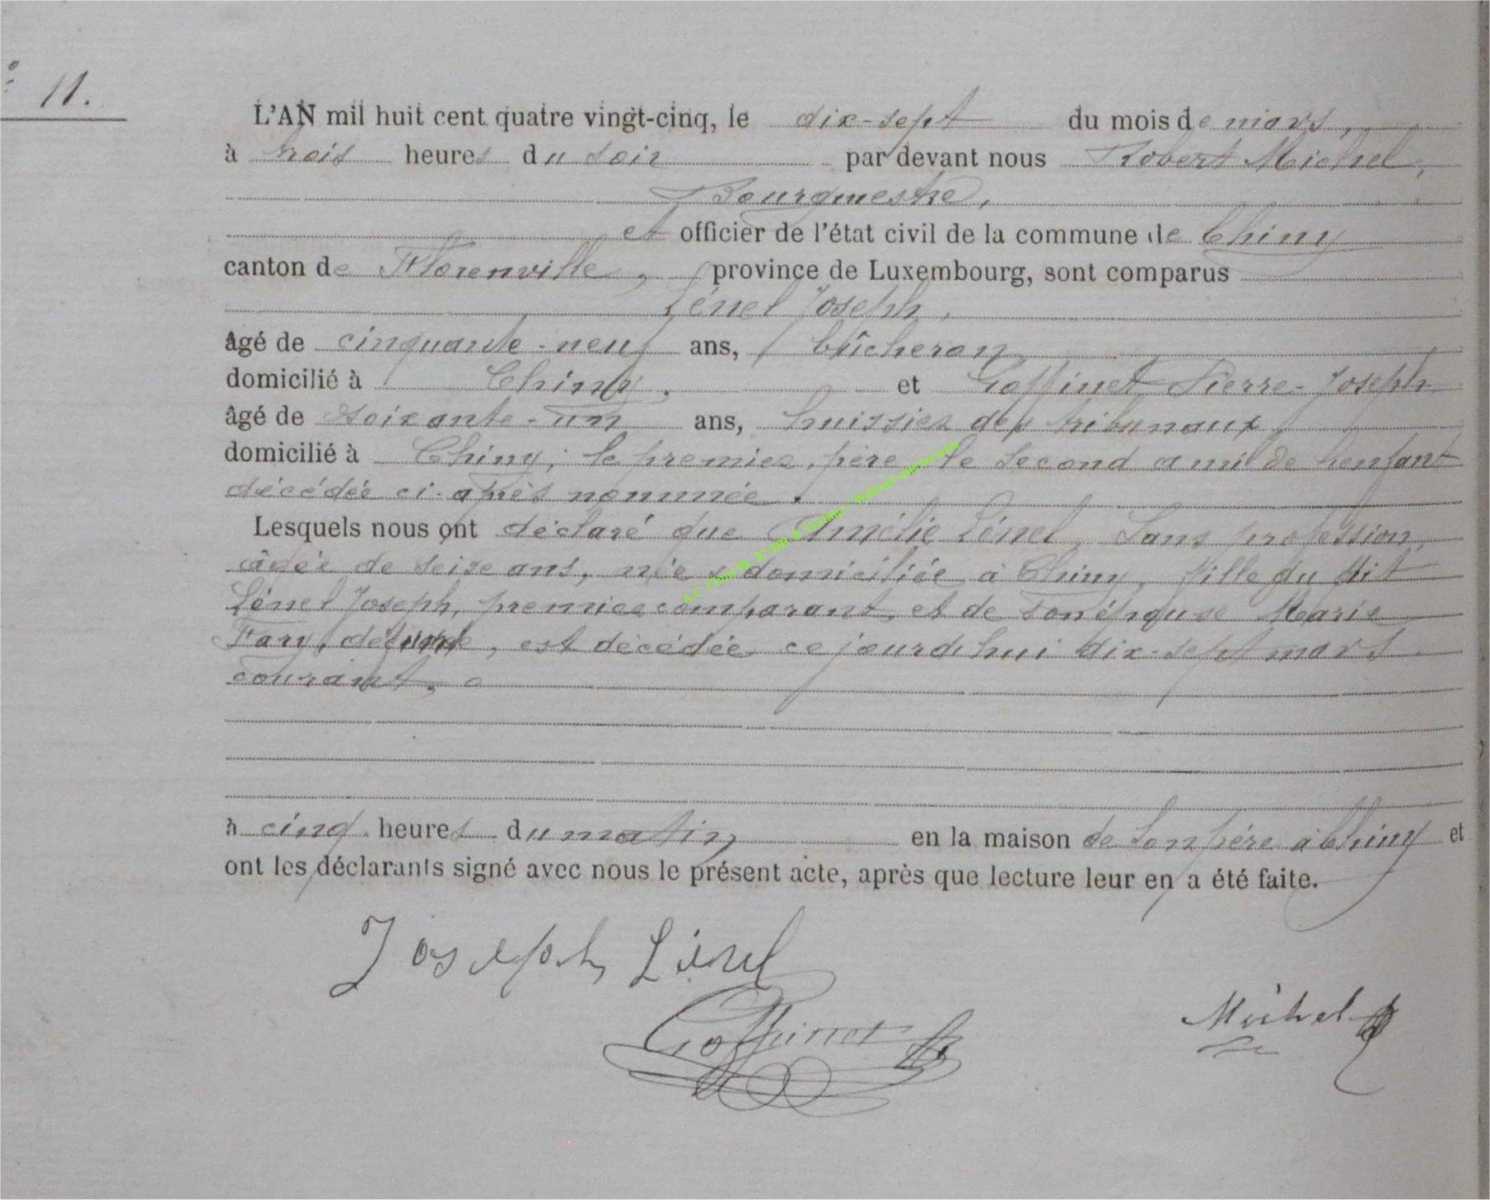 11.
L'AN mil huit cent quatre vingt-cinq, le dix-sept du mois de mars,
à trois heures du soir par devant nous Robert Michel,
Bourgmestre,
et officier de l'état civil de la commune de Chiny
canton de Florenville, province de Luxembourg, sont comparus
Lénel Joseph,
âgé de cinquante-neuf ans, bûcheron
domicilié à Chiny, et Goffinet Pierre-Joseph
âgé de soixante-un ans, huissier des tribunaux
domicilié à Chiny, le premier, père, le second ami de l'enfant
décédée ci-après nommée.
Lesquels nous ont déclaré que Amélie Lénel, Sans profession,
âgée de seize ans, née & domiciliée à Chiny, fille du dit
Lénel Joseph, premier comparant, et de son épouse Marie
défunte, est décédée ce jourd'hui dix-sept mars
courant,
à cinq heures du matin en la maison de son père à Chiny et
ont les déclarants signé avec nous le présent acte, après que lecture leur en a été faite.
Joseph Lénel
Goffinet
Michel R